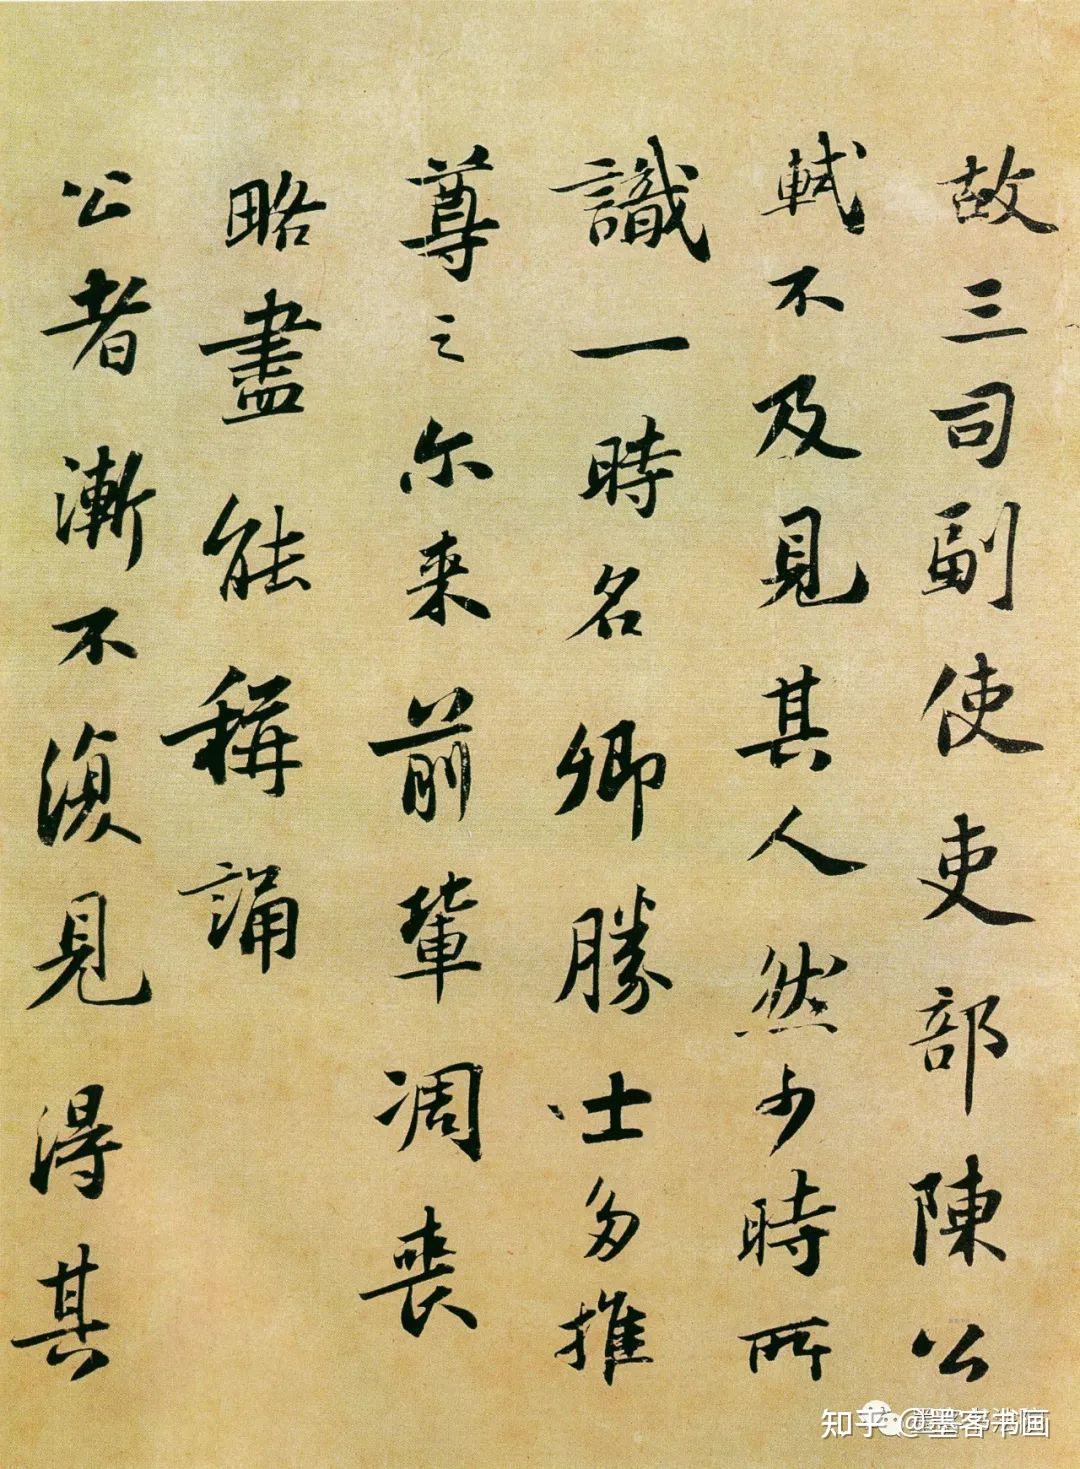 故三司副使吏部陳公
軾不及見其人然少時所
識一時名卿勝士多推
尊之尔来前輩凋喪
略盡能稱誦
公者漸不復見得其
知乎 @墨客书画